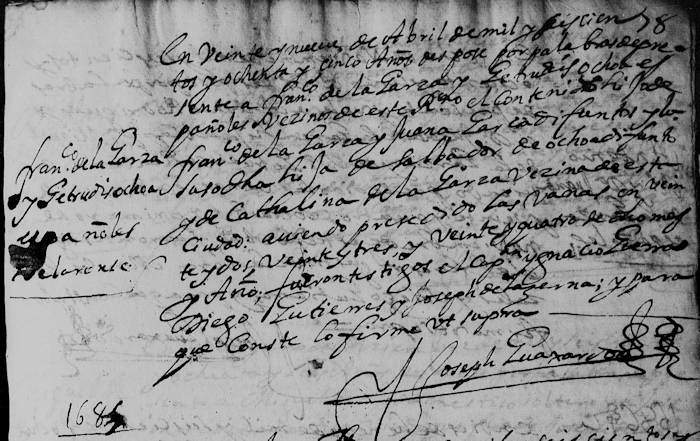 En Veinte y nueve de Abril de mil y seiscien
tos y ochenta y cinco Años despose por palabras de pre
sente a franco. de la Garza y Getrudis ochoa es
pañoles Vezinos de este Rno. el Contenido hijo de
franco. de la Garca y Juana Garca difuntos y la
susodha hija de Salbador de ochoa difunto
y de Cathalina de la Garza Vezina de esta
Ciudad. auiendo presedido las Vanas en vein
te y dos, veinte y tres, y veinte y quatro de dho mes
y Año, fueron testigos el Capn. ygnacio Guerra
Diego Gutierres y Joseph de la Serna; y para
que Conste lo firme Vt supra
Joseph Guaxardo
franco. de la Garza
y Getrudis ochoa
españoles
Velaronse
1685